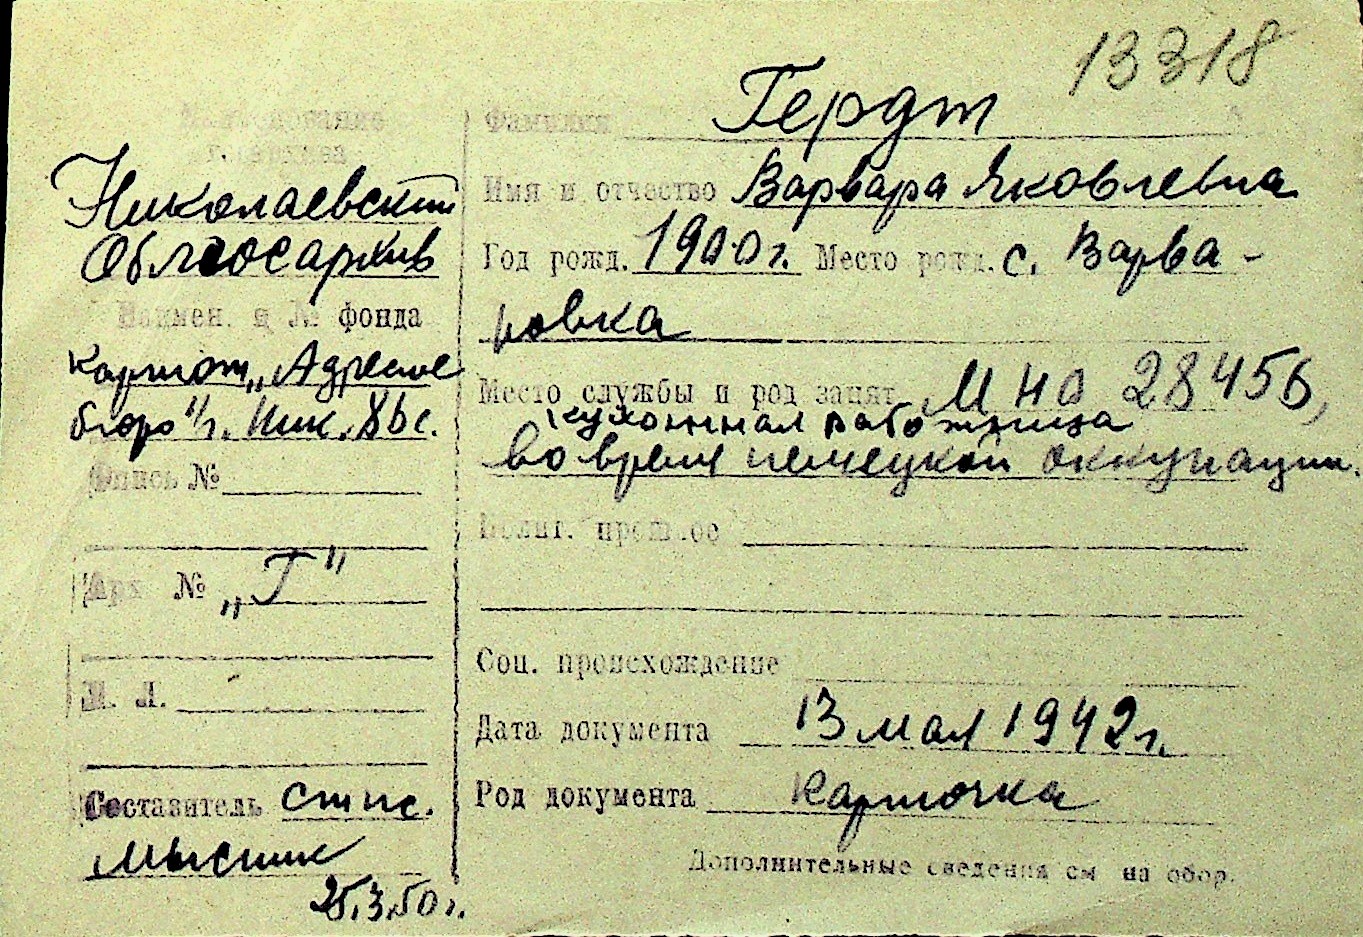 13318
Наименование
госархива
Николаевский
Облгосархив
Наимен. и № фонда
картот. „Адресное
бюро" г. Ник.
Опись №
Арх № „Г"
К. Л.
Составитель ст. н. с.
25.3.50 г.
Фамилия Гердт
Имя и отчество Варвара Яковлевна
Год рожд. 1900 г. Место рожд. с. Варва-
ровка
Место службы и род занят. М на 28456,
кухонная работница
во время немецкой оккупации.
Полит. прошлое
Соц. происхождение
Дата документа 13 мая 1942 г.
Род документа карточка
Дополнительные сведения см на обор.